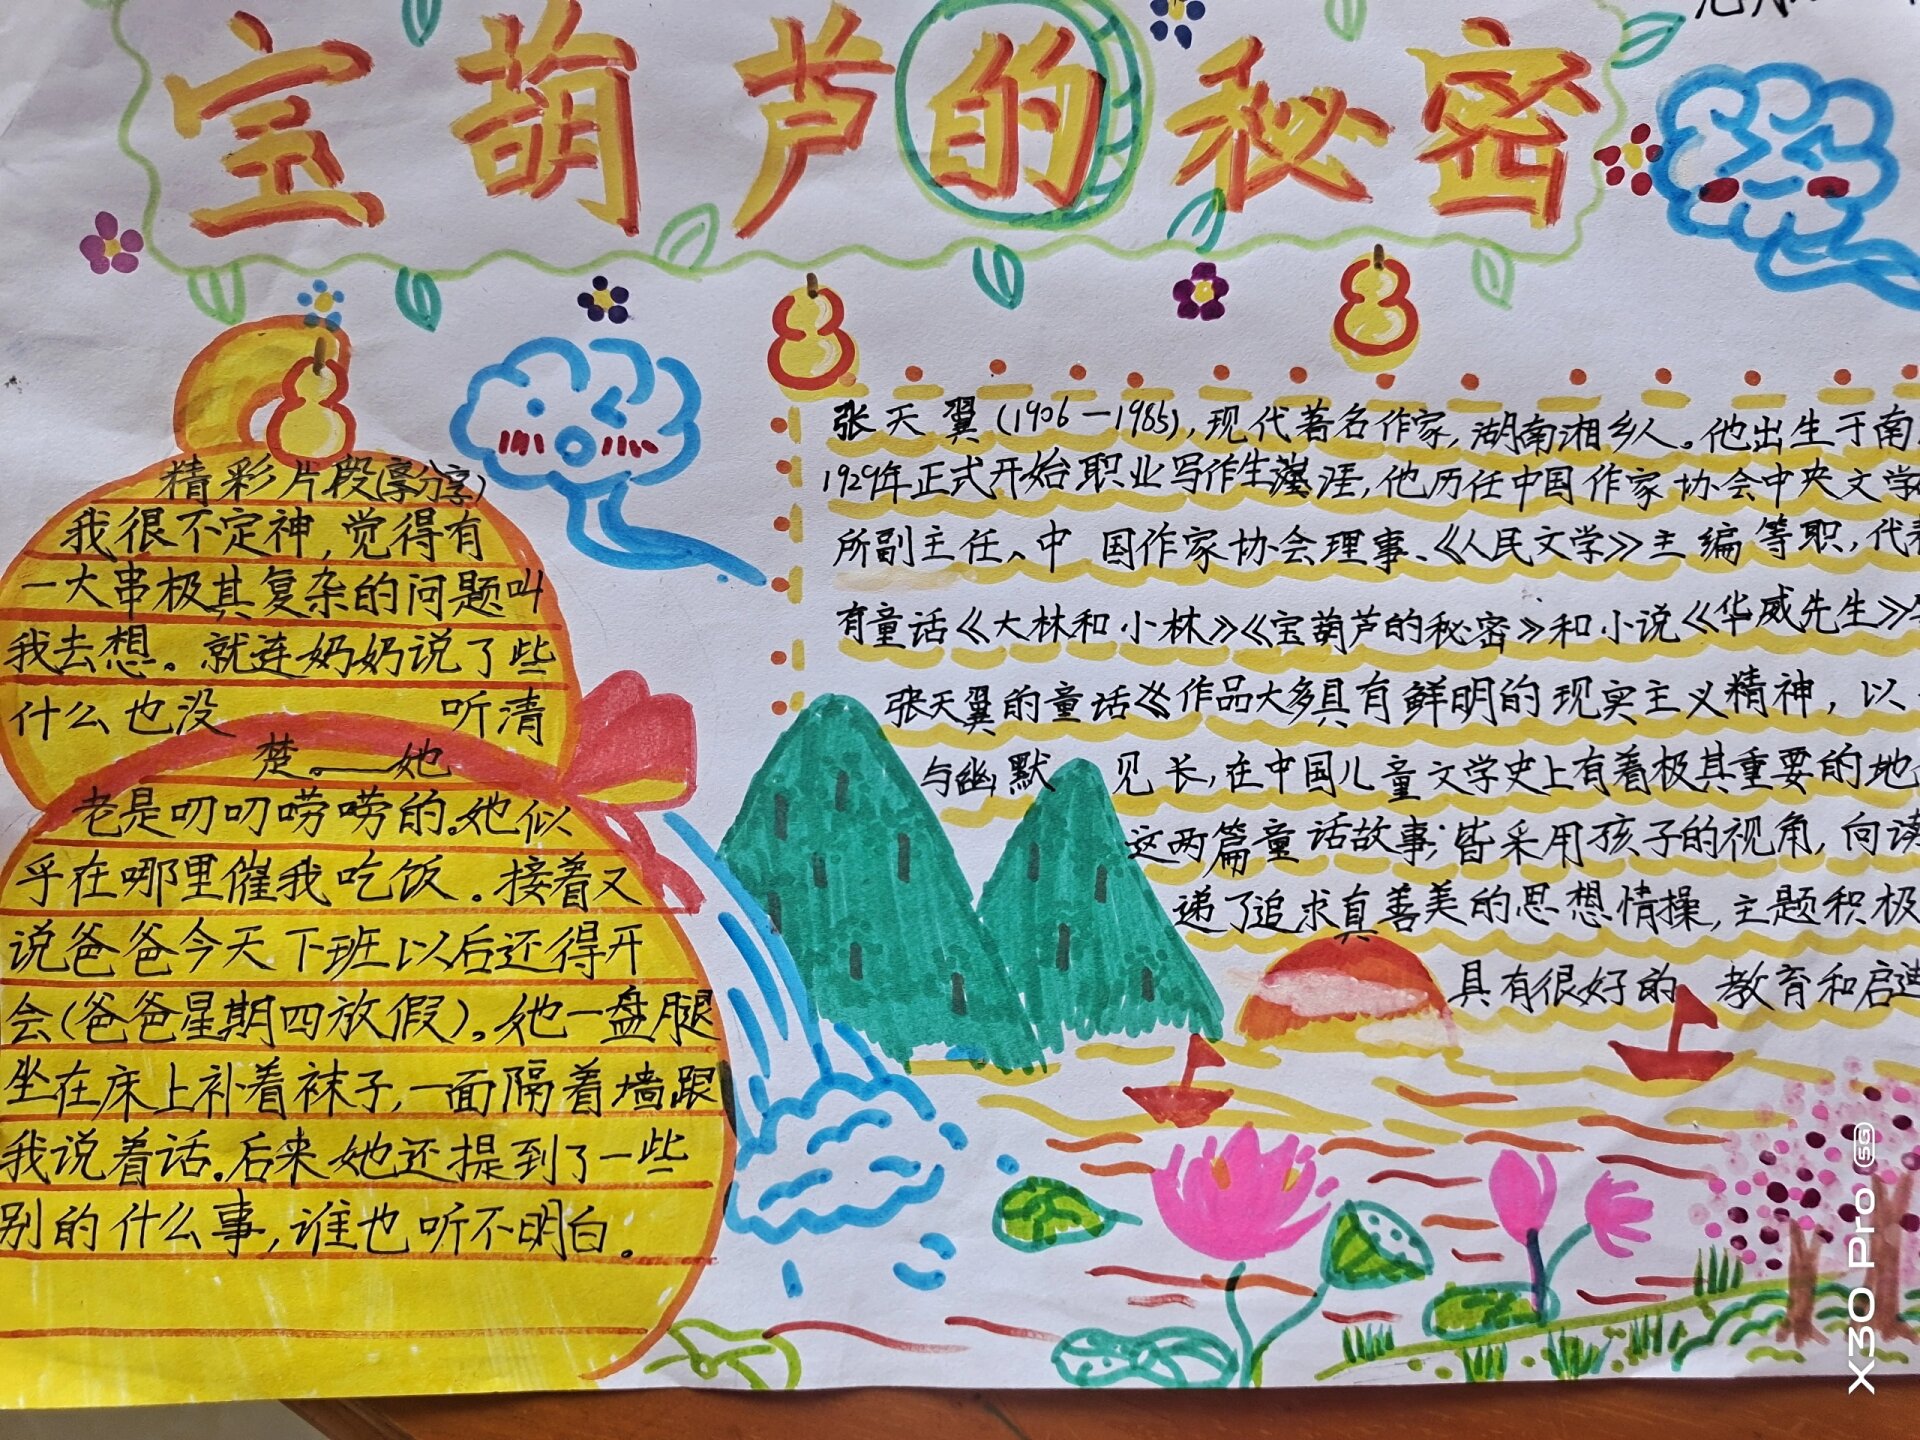 宝葫芦的秘密
精彩片段(享分享)
我很不定神,觉得有
一大串极其复杂的问题叫
我去想。就连奶奶说了些
什么也没 听清
楚。——她
老是叨叨唠唠的。她似
乎在哪里催我吃饭。接着又
说爸爸今天下班以后还得开
会(爸爸星期四放假)。她一盘腿
坐在床上补着袜子,一面隔着墙跟
我说着话。后来她还提到了一些
别的什么事,谁也听不明白。
张天翼(1906—1985),现代著名作家,湖南湘乡人。他出生于南
1929年正式开始职业写作生涯,他历任中国作家协会中央文学
所副主任、中国作家协会理事、《人民文学》主编等职,代表
有童话《大林和小林》《宝葫芦的秘密》和小说《华威先生》
张天翼的童话作品大多具有鲜明的现实主义精神,以
与幽默 见长,在中国儿童文学史上有着极其重要的地
这两篇童话故事;皆采用孩子的视角,向读
递了追求真善美的思想情操,主题积极
具有很好的 教育和启
X30 Pro 5G